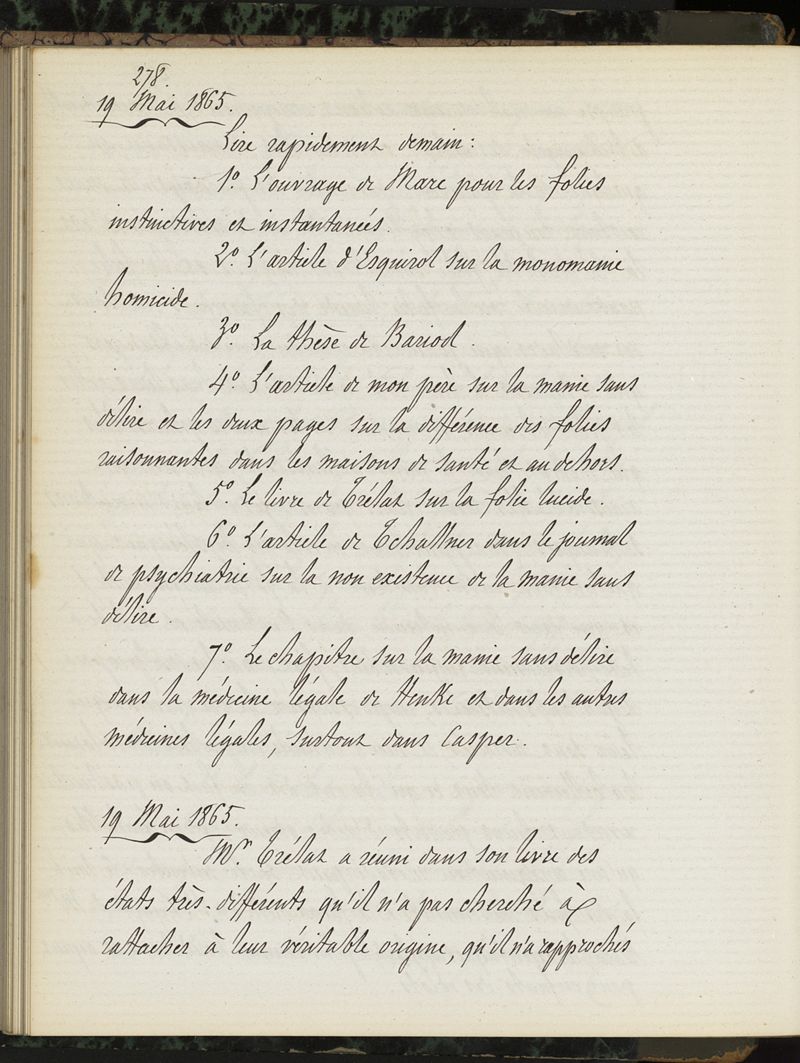 278.
19 Mai 1865.
Lire rapidement demain:
1º. L'ouvrage de Marc pour les folies
instinctives et instantanées.
2º. L'article d'Esquirol sur la monomanie
homicide.
3º. La thèse de Bariod.
4º. L'article de mon père sur la manie sans
délire et les deux pages sur la différence des folies
raisonnantes dans les maisons de santé et au dehors.
5º. Le livre de Trélat sur la folie lucide.
6º. L'article de Tchallner dans le journal
de psychiatrie sur la non existence de la manie sans
délire.
7º. Le chapitre sur la manie sans délire
dans la médecine légale de Henke et dans les autres
médecines légales, surtout dans Casper.
19 Mai 1865.
Mr. Trélat a réuni dans son livre des
états très-différents qu'il n'a pas cherché à
rattacher à leur véritable origine, qu'il n'a rapprochés